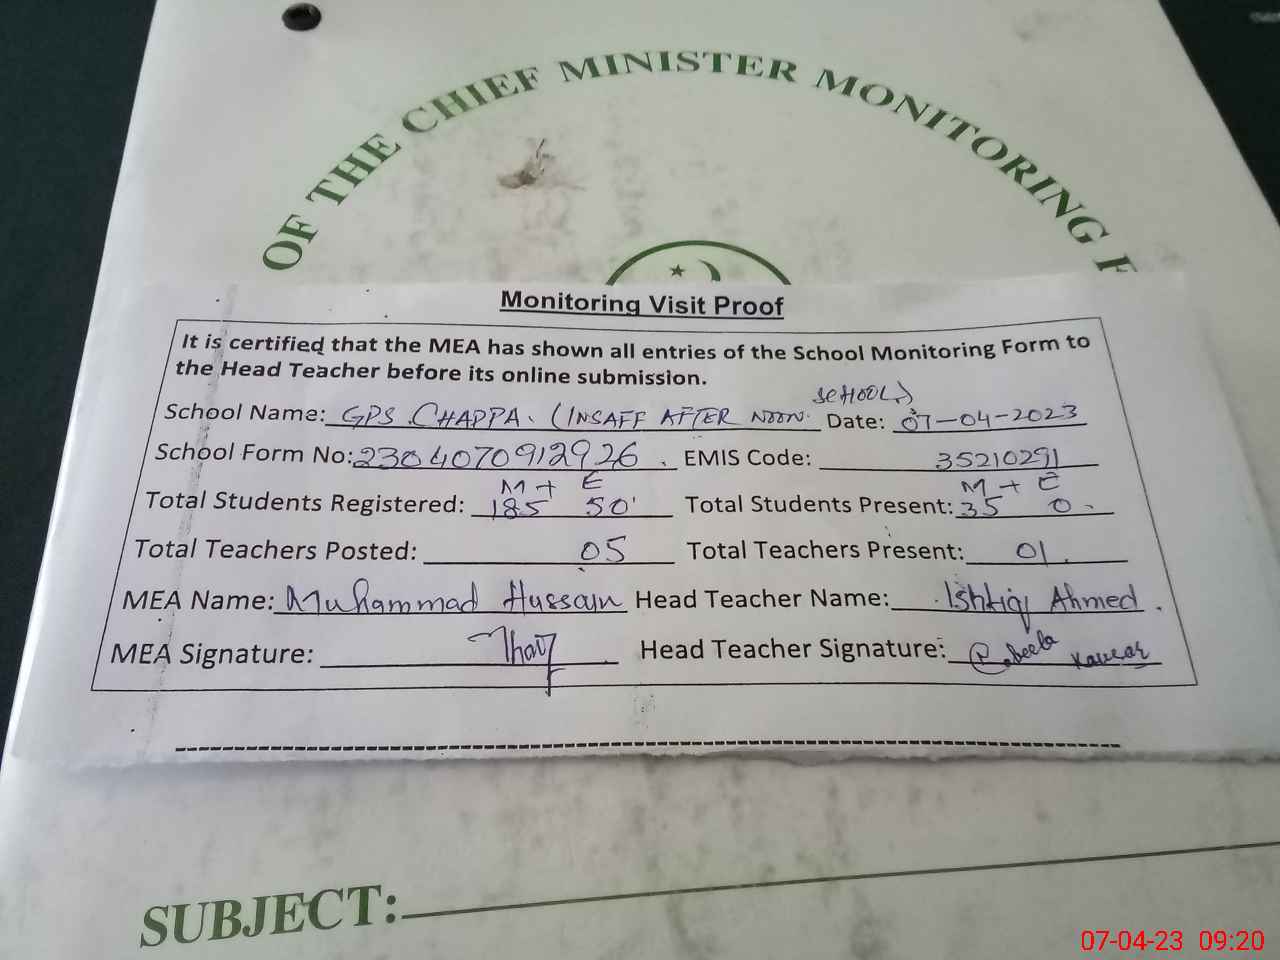 OF THE CHIEF MINISTER MONITORING F
Monitoring Visit Proof
It is certified that the MEA has shown all entries of the School Monitoring Form to
the Head Teacher before its online submission.
School Name: GPS CHAPPA. (INSAFF AFTER NOON SCHOOL) Date: 07-04-2023
School Form No: 2304070912926. EMIS Code: 35210291
M + E M + E
Total Students Registered: 185 50 Total Students Present: 35 0
Total Teachers Posted: 05 Total Teachers Present: 01.
MEA Name: Muhammad Hussain Head Teacher Name: Ishtiq Ahmed.
MEA Signature: Head Teacher Signature: Kausar
SUBJECT:
07-04-23 09:20